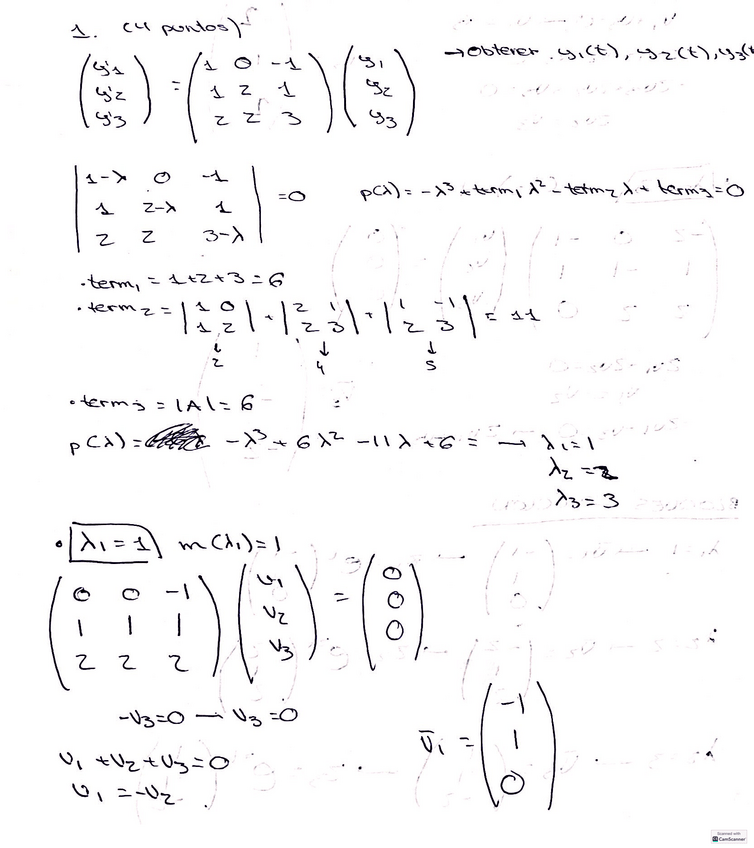 1. (4 puntos)
(y'1 y'2 y'3) = (1 0 -1 / 1 2 1 / 2 2 3) (y1 y2 y3) → Obtener y1(t), y2(t), y3(t
|1-λ 0 -1 / 1 2-λ 1 / 2 2 3-λ| = 0 p(λ) = -λ³ + term1 λ² - term2 λ + term3 = 0
· term1 = 1+2+3 = 6
· term2 = |1 0 / 1 2| + |2 1 / 2 3| + |1 -1 / 2 3| = 11
↓ ↓ ↓
2 4 5
· term3 = |A| = 6
p(λ) = -λ³ + 6λ² - 11λ + 6 = → λ1 = 1
λ2 = 2
λ3 = 3
· λ1 = 1 m(λ1) = 1
(0 0 -1 / 1 1 1 / 2 2 2) (v1 v2 v3) = (0 0 0)
-v3=0 — v3=0
v1 + v2 + v3 = 0
v1 = -v2
v̄1 = (-1 1 0)
Scanned with
CamScanner